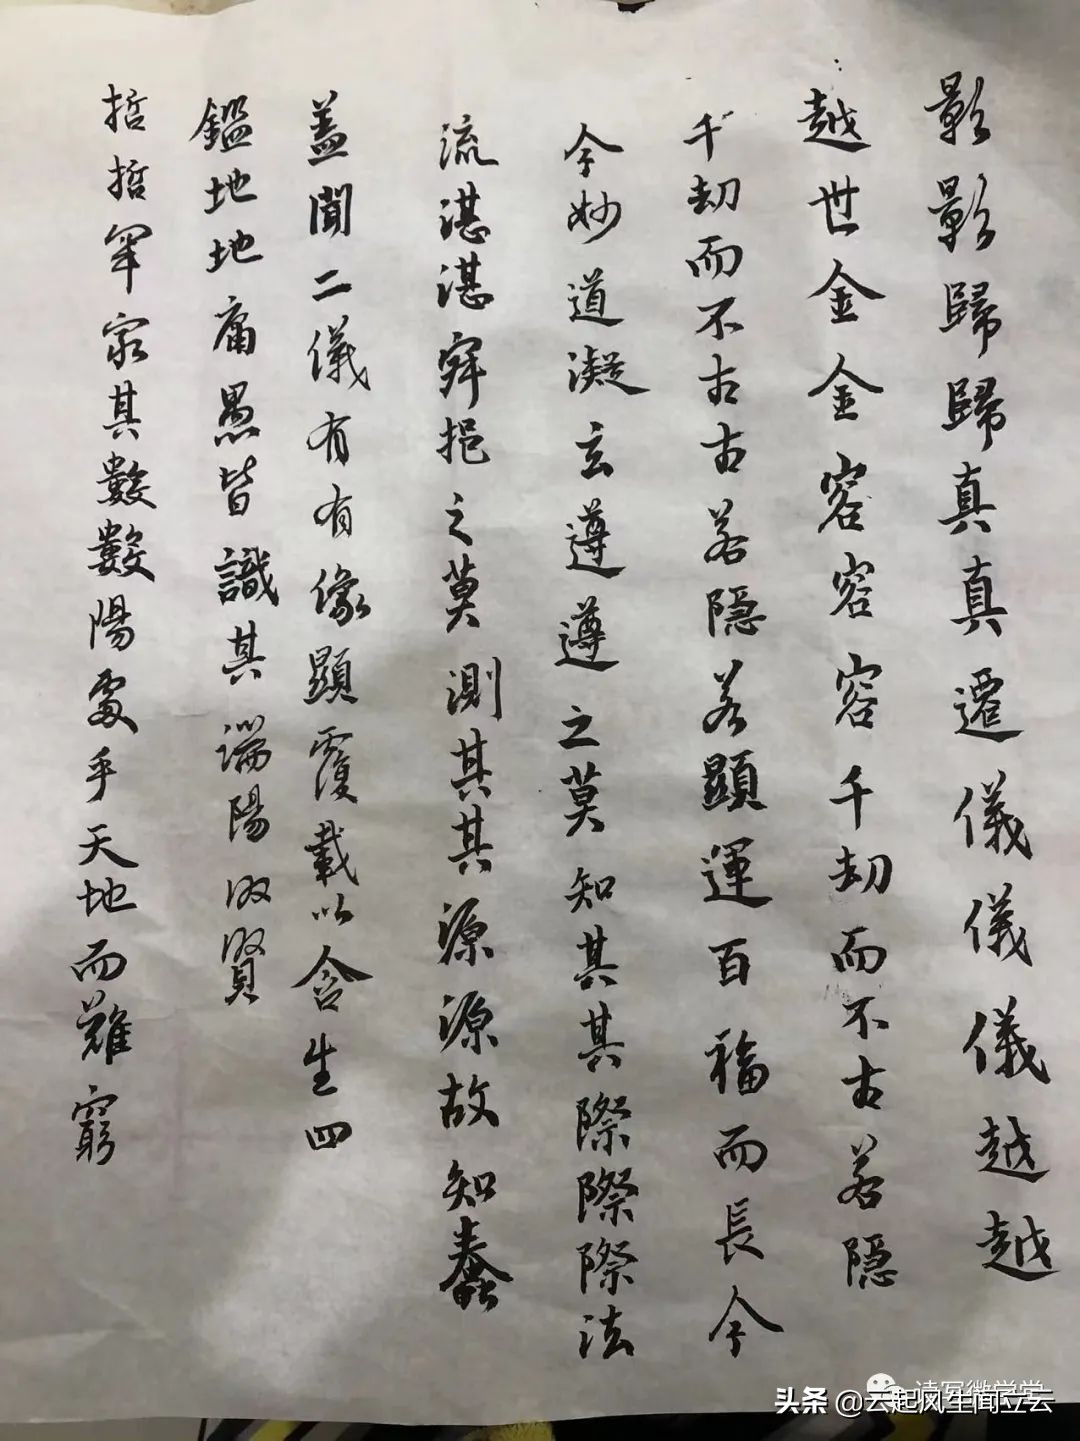 影影歸歸真真遷儀儀儀越越
越世金金容容容千劫而不古若隱
千劫而不古古若隱若顯運百福而長今
今妙道凝玄遵遵之莫知其其際際際法
流湛湛寂挹之莫測其其源源故知蠢
蓋聞二儀有有像顯覆載以含生四
鑑地地庸愚皆識其端陽 賢
哲哲罕 其數數陽處乎天地而難窮
头条 @云起风生闻立云
读写微学堂